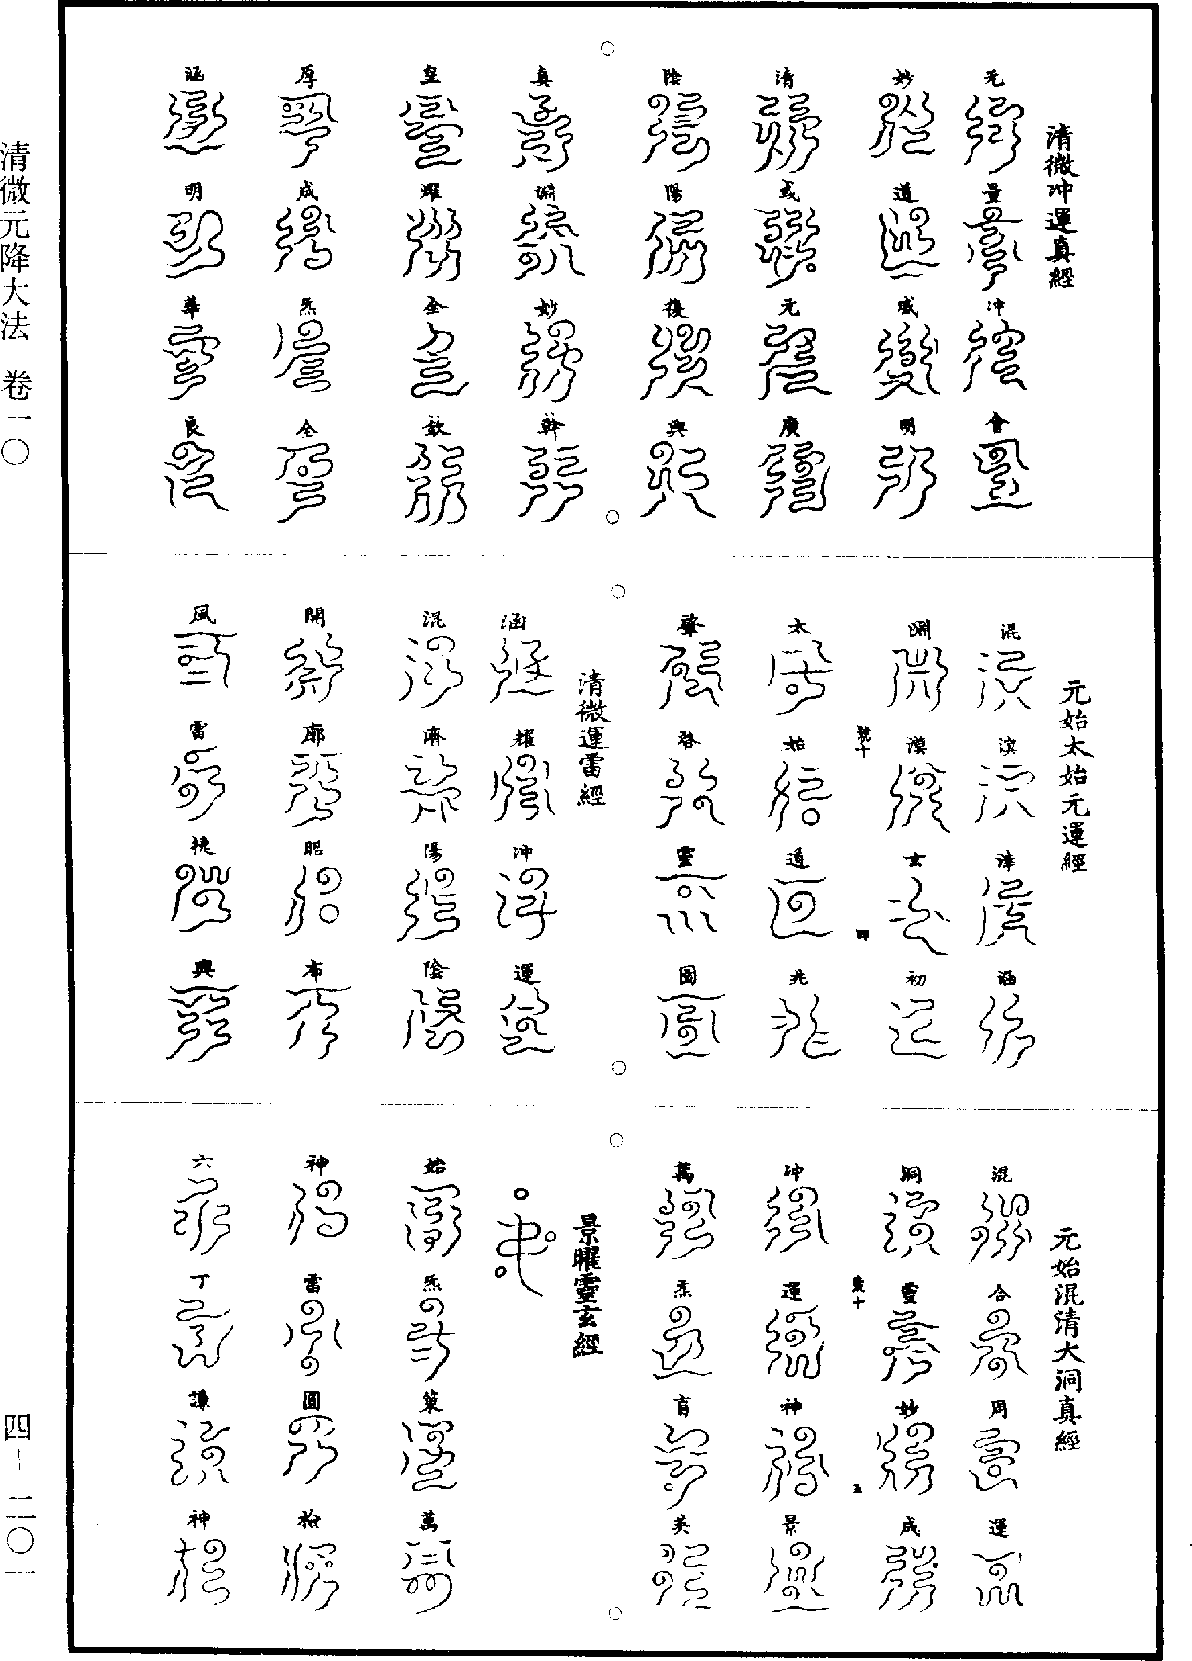 清微元降大法　卷一〇
四－二〇一
清微冲運真經
元量冲會
妙道咸明
清或元廣
陰陽復與
真淵妙幹
皇耀全敘
厚成炁全
涵明華良
元始太始元運經
混滨津涵
淵漠玄初
號十　四
太始道兆
肇啓靈圖
清微運雷經
涵耀冲運
混肅陽陰
開廓肥布
風雷挑興
元始混清大洞真經
混合用運
洞靈妙成
號十　五
冲運神景
萬炁育英
景曜靈玄經
始炁策萬
神雷圓
六丁謙神